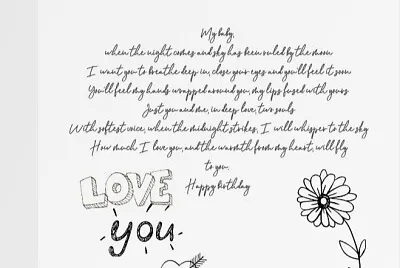 My baby,
when the night comes and sky has been ruled by the moon
I want you to breathe deep in, close your eyes and you'll feel it soon
You'll feel my hands wrapped around you, my lips fused with yours
Just you and me, in deep love, two souls
With softest voice, when the midnight strikes, I will whisper to the sky
How much I love you, and the warmth from my heart, will fly
to you.
Happy Birthday
LOVE
you